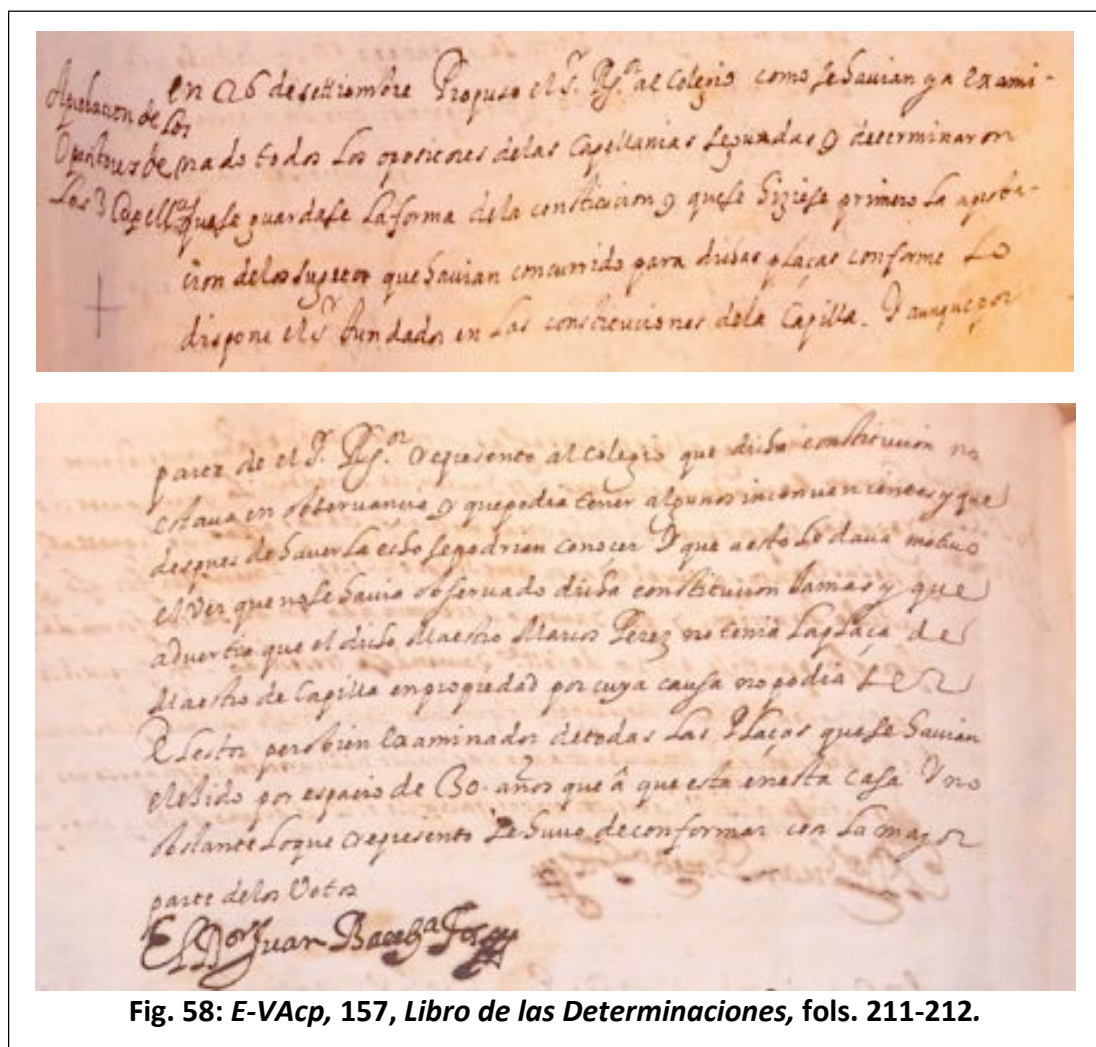 Aprobacion de los
Opositores de
Las 3 Capellas
en 26 de settiembre Propuso el Sr. Rr. al Colegio como se havian ya exami-
nado todos Los opositores delas Capellanias segundas y determinaron
que se guardase La forma dela constitucion y que se hiziese primero La aproba-
cion delos sugetos que havian concurrido para dichas plaças conforme Lo
dispone el Sr. fundador en Las constituciones dela Capilla. Y aunque por
parte de el Sr. Rr. represento al Colegio que dicha constitucion no
estava en observancia y que podia tener algunos inconvenientes y que
despues de haverla echo se podrian conocer Y que a esto le dava motivo
el Ver que no se havia observado dicha constitucion Jamas y que
advertia que el dicho Maestro Marcos Perez no tenia La plaça de
Maestro de Capilla en propiedad por cuya causa no podia ser
Elector pero bien Examinador de todas Las Plaças que se havian
elehido por espacio de 30 años que â que esta en esta Casa Y no
obstante Lo que represento se huvo de conformar con La mayor
parte delos Votos
El Dor Juan Bauta
Fig. 58: E-VAcp, 157, Libro de las Determinaciones, fols. 211-212.